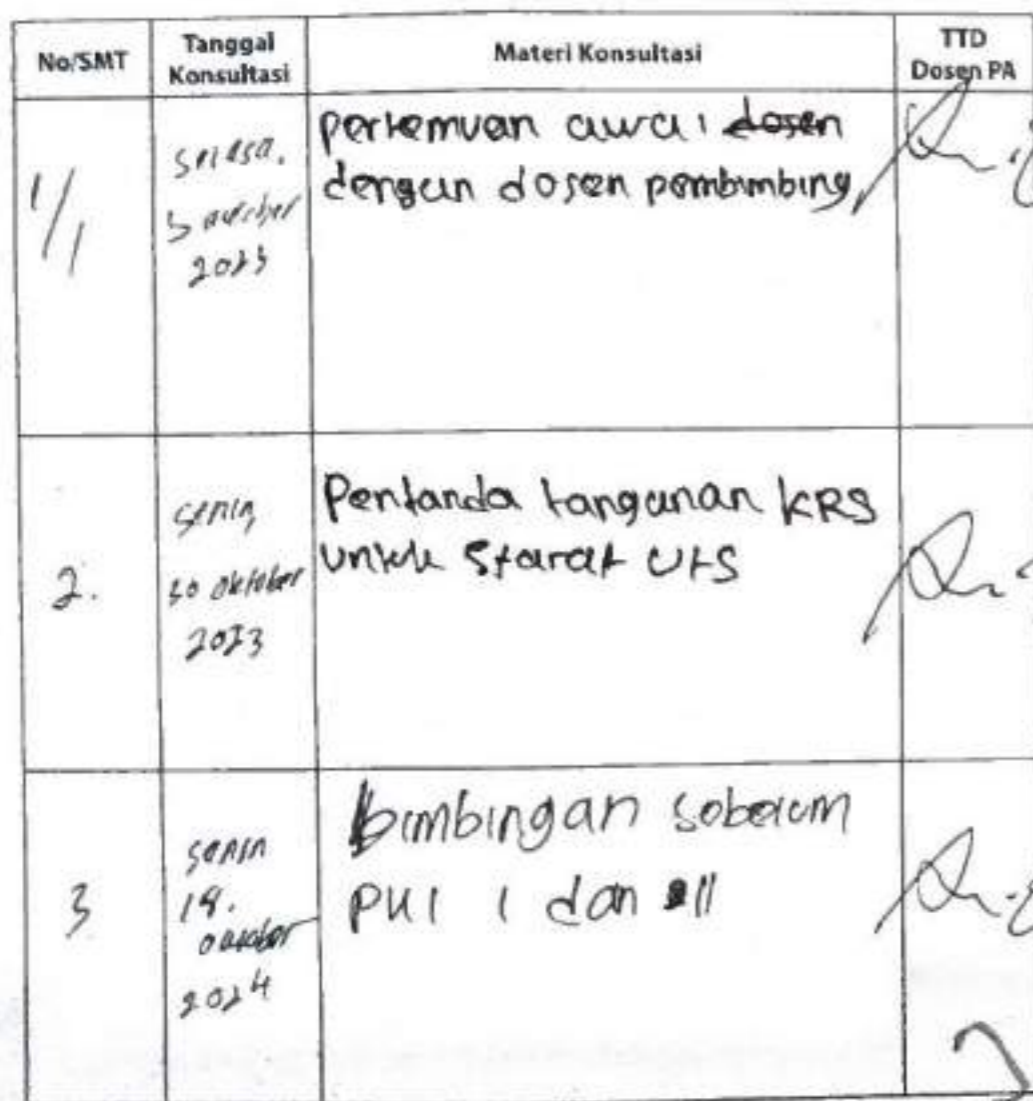 No/SMT
Tanggal
Konsultasi
Materi Konsultasi
TTD
Dosen PA
1/1
selasa,
2023
pertemuan awal dosen
dengan dosen pembimbing
2.
senin,
30 oktober
2023
Pentanda tanganan KRS
untuk Starat UtS
3
senin
oktober
2024
bimbingan sebelum
1 dan II